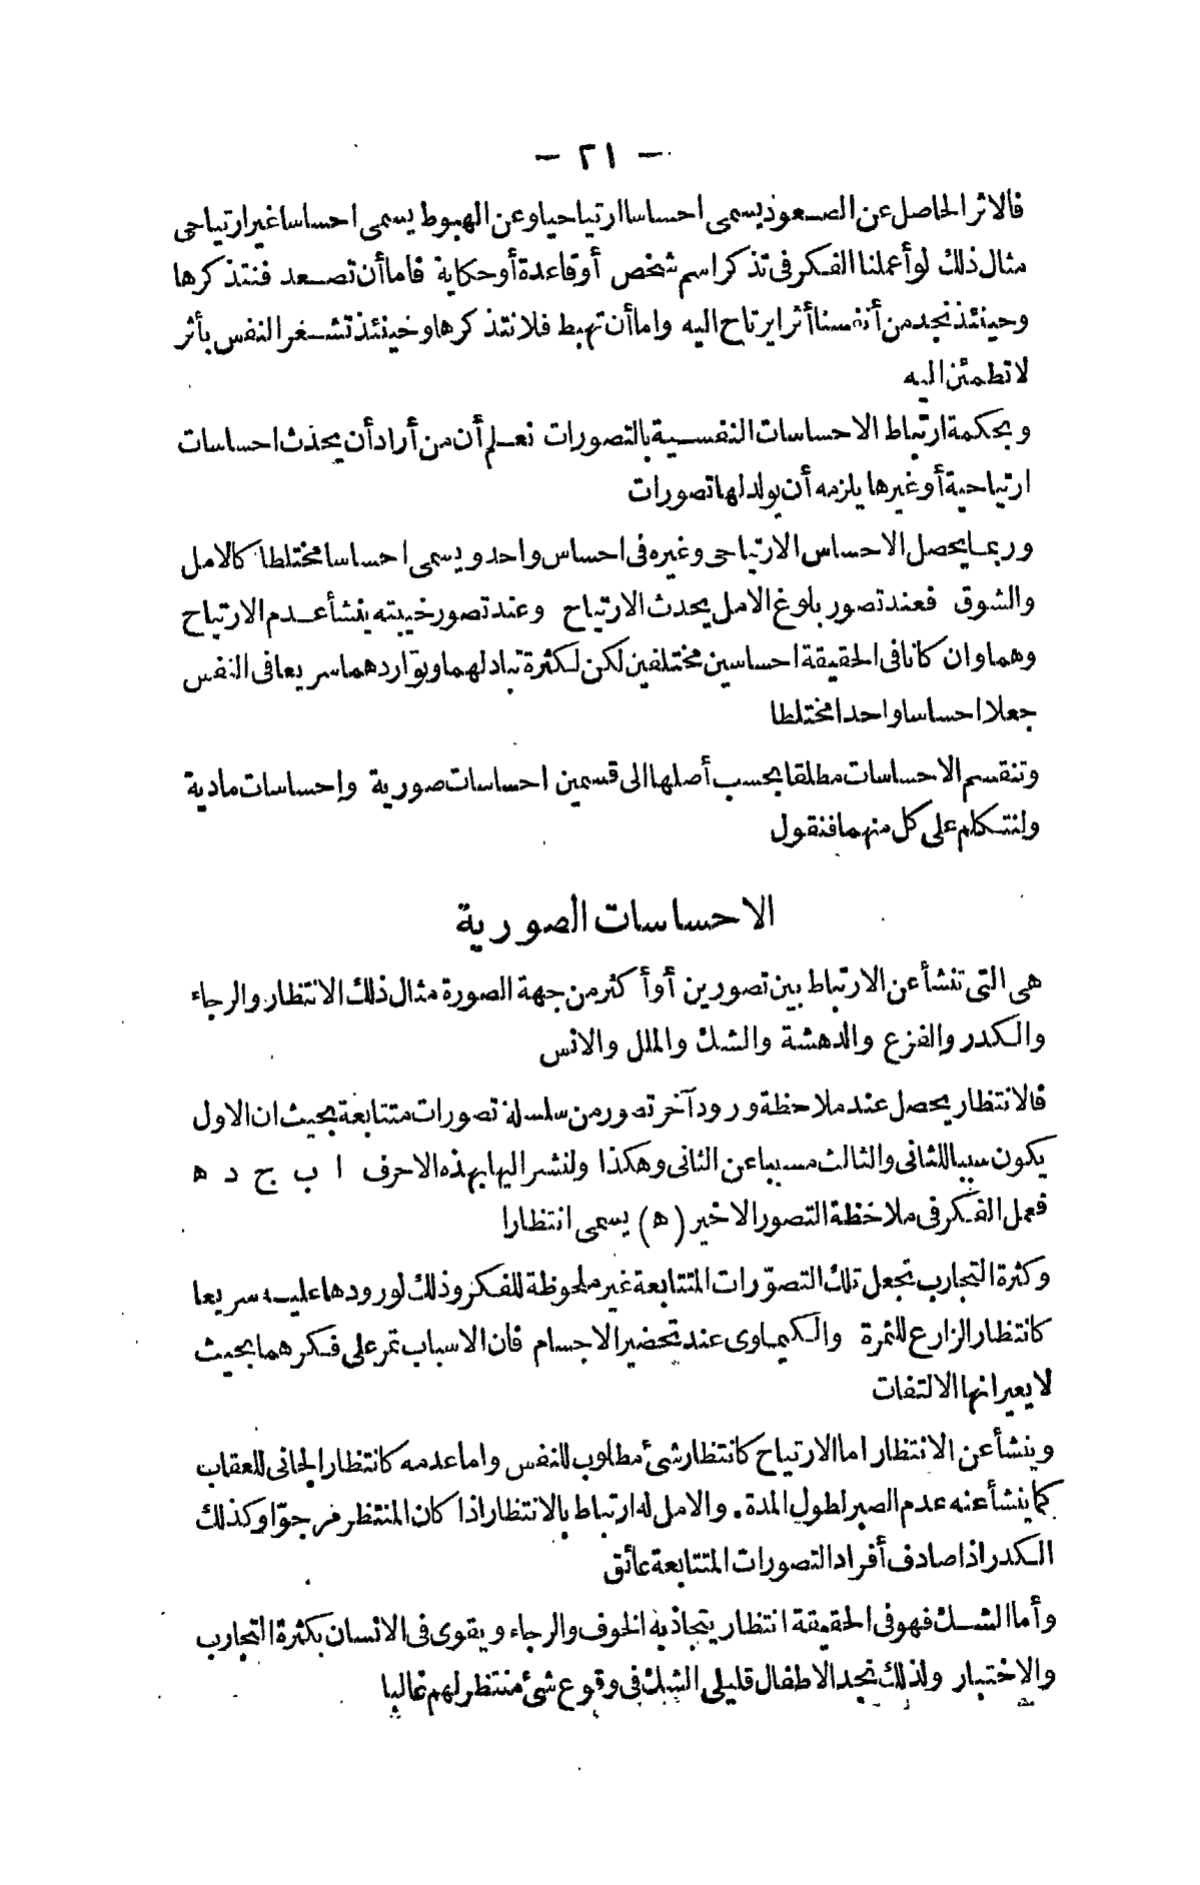 — ٢١ —
فالاثر الحاصل عن الصعود يسمى احساسا ارتياحيا وعن الهبوط يسمى احساسا غير ارتياحى
مثال ذلك لو أعملنا الفكر فى تذكر اسم شخص أو قاعدة أو حكاية فاما أن تصعد فنتذكرها
وحينئذ نجد من أنفسنا أثرا يرتاح اليه واما أن تهبط فلا نتذكرها وحينئذ تشغر النفس بأثر
لا تطمئن اليه
وبحكمة ارتباط الاحساسات النفسية بالتصورات نعلم أن من أراد أن يحدث احساسات
ارتياحية أو غيرها يلزمه أن يولد لها تصورات
وربما يحصل الاحساس الارتياحى وغيره فى احساس واحد ويسمى احساسا مختلطا كالامل
والشوق فعند تصور بلوغ الامل يحدث الارتياح وعند تصور خيبته ينشأ عدم الارتياح
وهما وان كانا فى الحقيقة احساسين مختلفين لكن لكثرة تبادلهما وتواردهما سريعا فى النفس
جعلا احساسا واحدا مختلطا
وتنقسم الاحساسات مطلقا بحسب أصلها الى قسمين احساسات صورية وإحساسات مادية
ولنتكلم على كل منهما فنقول
الاحساسات الصورية
هى التى تنشأ عن الارتباط بين تصورين أو أكثر من جهة الصورة مثال ذلك الانتظار والرجاء
والكدر والفزع والدهشة والشك والملل والانس
فالانتظار يحصل عند ملاحظة ورود آخر تصور من سلسلة تصورات متتابعة بحيث ان الاول
يكون سببا للثانى والثالث مسببا عن الثانى وهكذا ولنشر اليها بهذه الاحرف ا ب ج د ه
فعمل الفكر فى ملاحظة التصور الاخير (ه) يسمى انتظارا
وكثرة التجارب تجعل تلك التصوّرات المتتابعة غير ملحوظة للفكر وذلك لورودها عليه سريعا
كانتظار الزارع للثمرة والكيماوى عند تحضير الاجسام فان الاسباب تمر على فكرهما بحيث
لا يعيرانها الالتفات
وينشأ عن الانتظار اما الارتياح كانتظار شئ مطلوب للنفس واما عدمه كانتظار الجانى للعقاب
كما ينشأ عنه عدم الصبر لطول المدة . والامل له ارتباط بالانتظار اذا كان المنتظر مرجوّا وكذلك
الكدر اذا صادف أفراد التصورات المتتابعة عائق
وأما الشك فهو فى الحقيقة انتظار يتجاذبه الخوف والرجاء ويقوى فى الانسان بكثرة التجارب
والاختبار ولذلك نجد الاطفال قليلى الشك فى وقوع شئ منتظر لهم غالبا